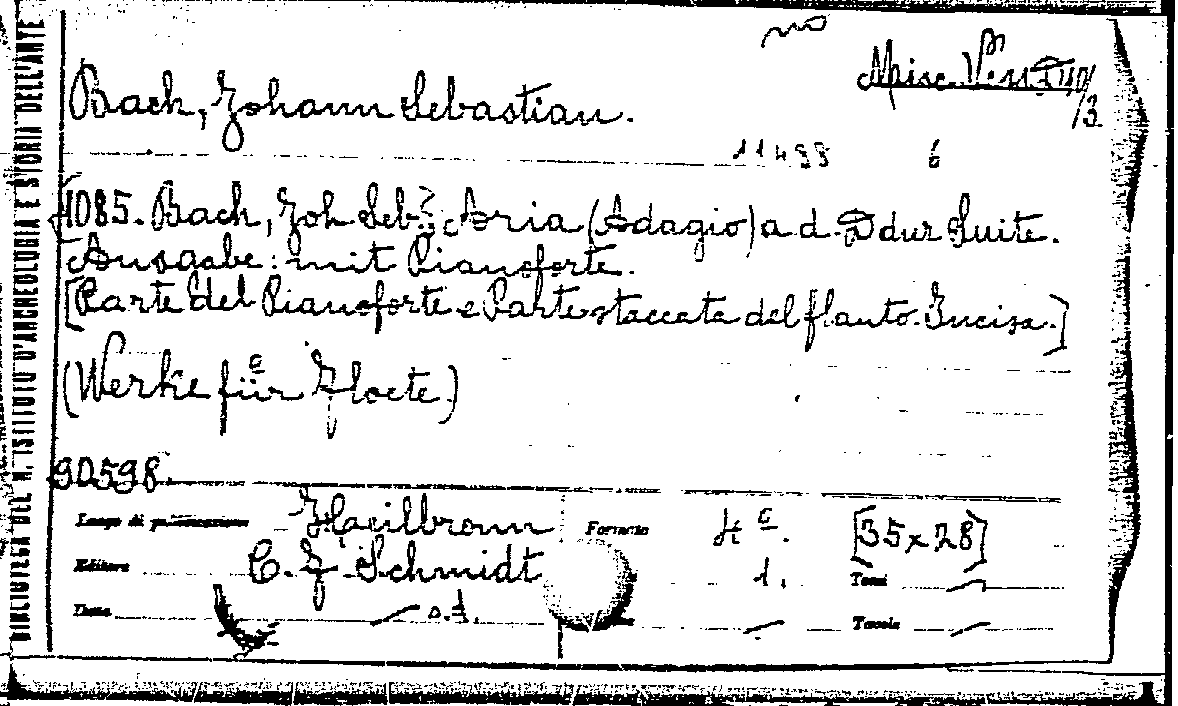 no
Misc. Ven. 340/3
Bach, Johann Sebastian.
11499 6
1085. Bach, Joh Seb: Aria (Adagio) a. d. D dur Suite.
Ausgabe: mit Pianoforte.
[Parte del Pianoforte e Parte staccata del flauto. Incisa.]
(Werke für Floete)
90598
Luogo di pubblicazione Haeilbronn Formato 4º. [35x28]
Editore C. F. Schmidt 1. Tomi —
Data — s.d. — Tavole —
BIBLIOTECA DEL R. ISTITUTO D'ARCHEOLOGIA E STORIA DELL'ARTE